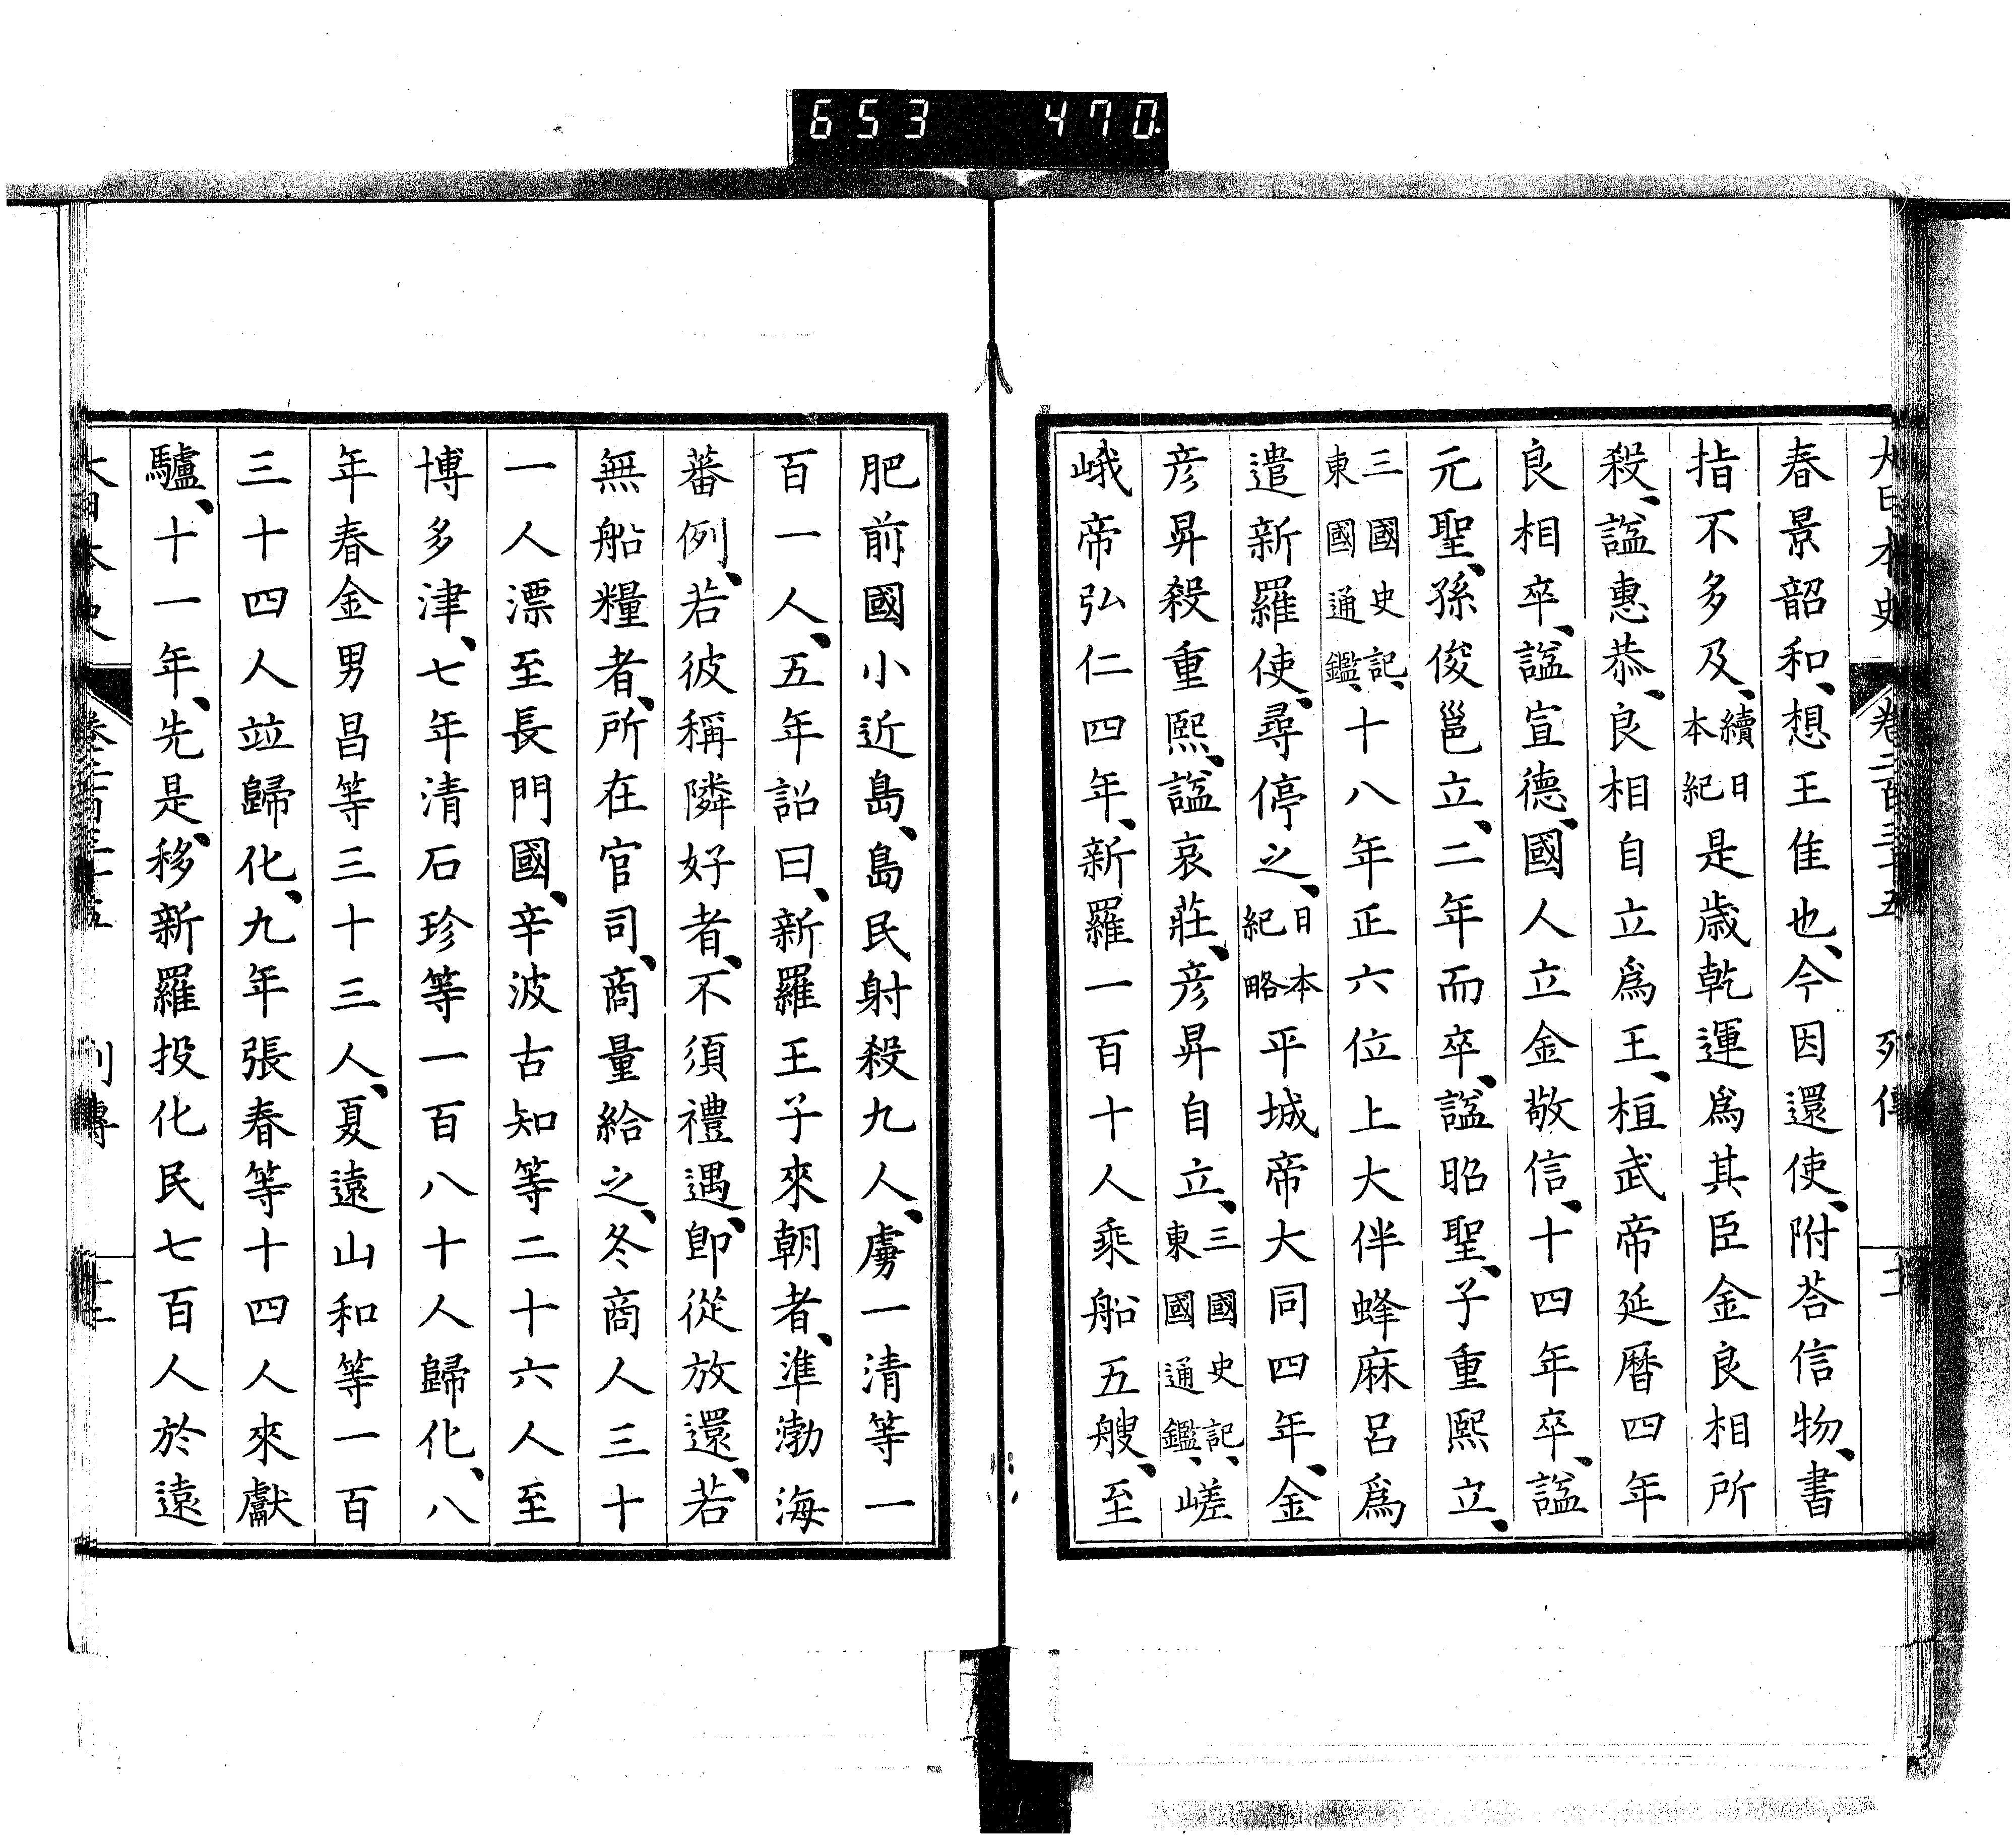 653 470
大日本史 卷二百三十五 列傳
春景韶和、想王佳也、今因還使、附荅信物、書
指不多及、續日本紀是歳乾運爲其臣金良相所
殺、諡惠恭、良相自立爲王、桓武帝延暦四年
良相卒、諡宣德、國人立金敬信、十四年卒、諡
元聖、孫俊邕立、二年而卒、諡昭聖、子重熙立、
三國史記、東國通鑑、十八年正六位上大伴蜂麻呂爲
遣新羅使、尋停之、日本紀略平城帝大同四年、金
彦昇殺重熙、諡哀莊、彦昇自立、三國史記、東國通鑑、嵯
峨帝弘仁四年、新羅一百十人乘船五艘、至
肥前國小近島、島民射殺九人、虜一清等一
百一人、五年詔曰、新羅王子來朝者、準渤海
蕃例、若彼稱隣好者、不須禮遇、卽從放還、若
無船糧者、所在官司、商量給之、冬商人三十
一人漂至長門國、辛波古知等二十六人至
博多津、七年清石珍等一百八十人歸化、八
年春金男昌等三十三人、夏遠山和等一百
三十四人竝歸化、九年張春等十四人來獻
驢、十一年、先是、移新羅投化民七百人於遠
大日本史 卷二百三十五 列傳